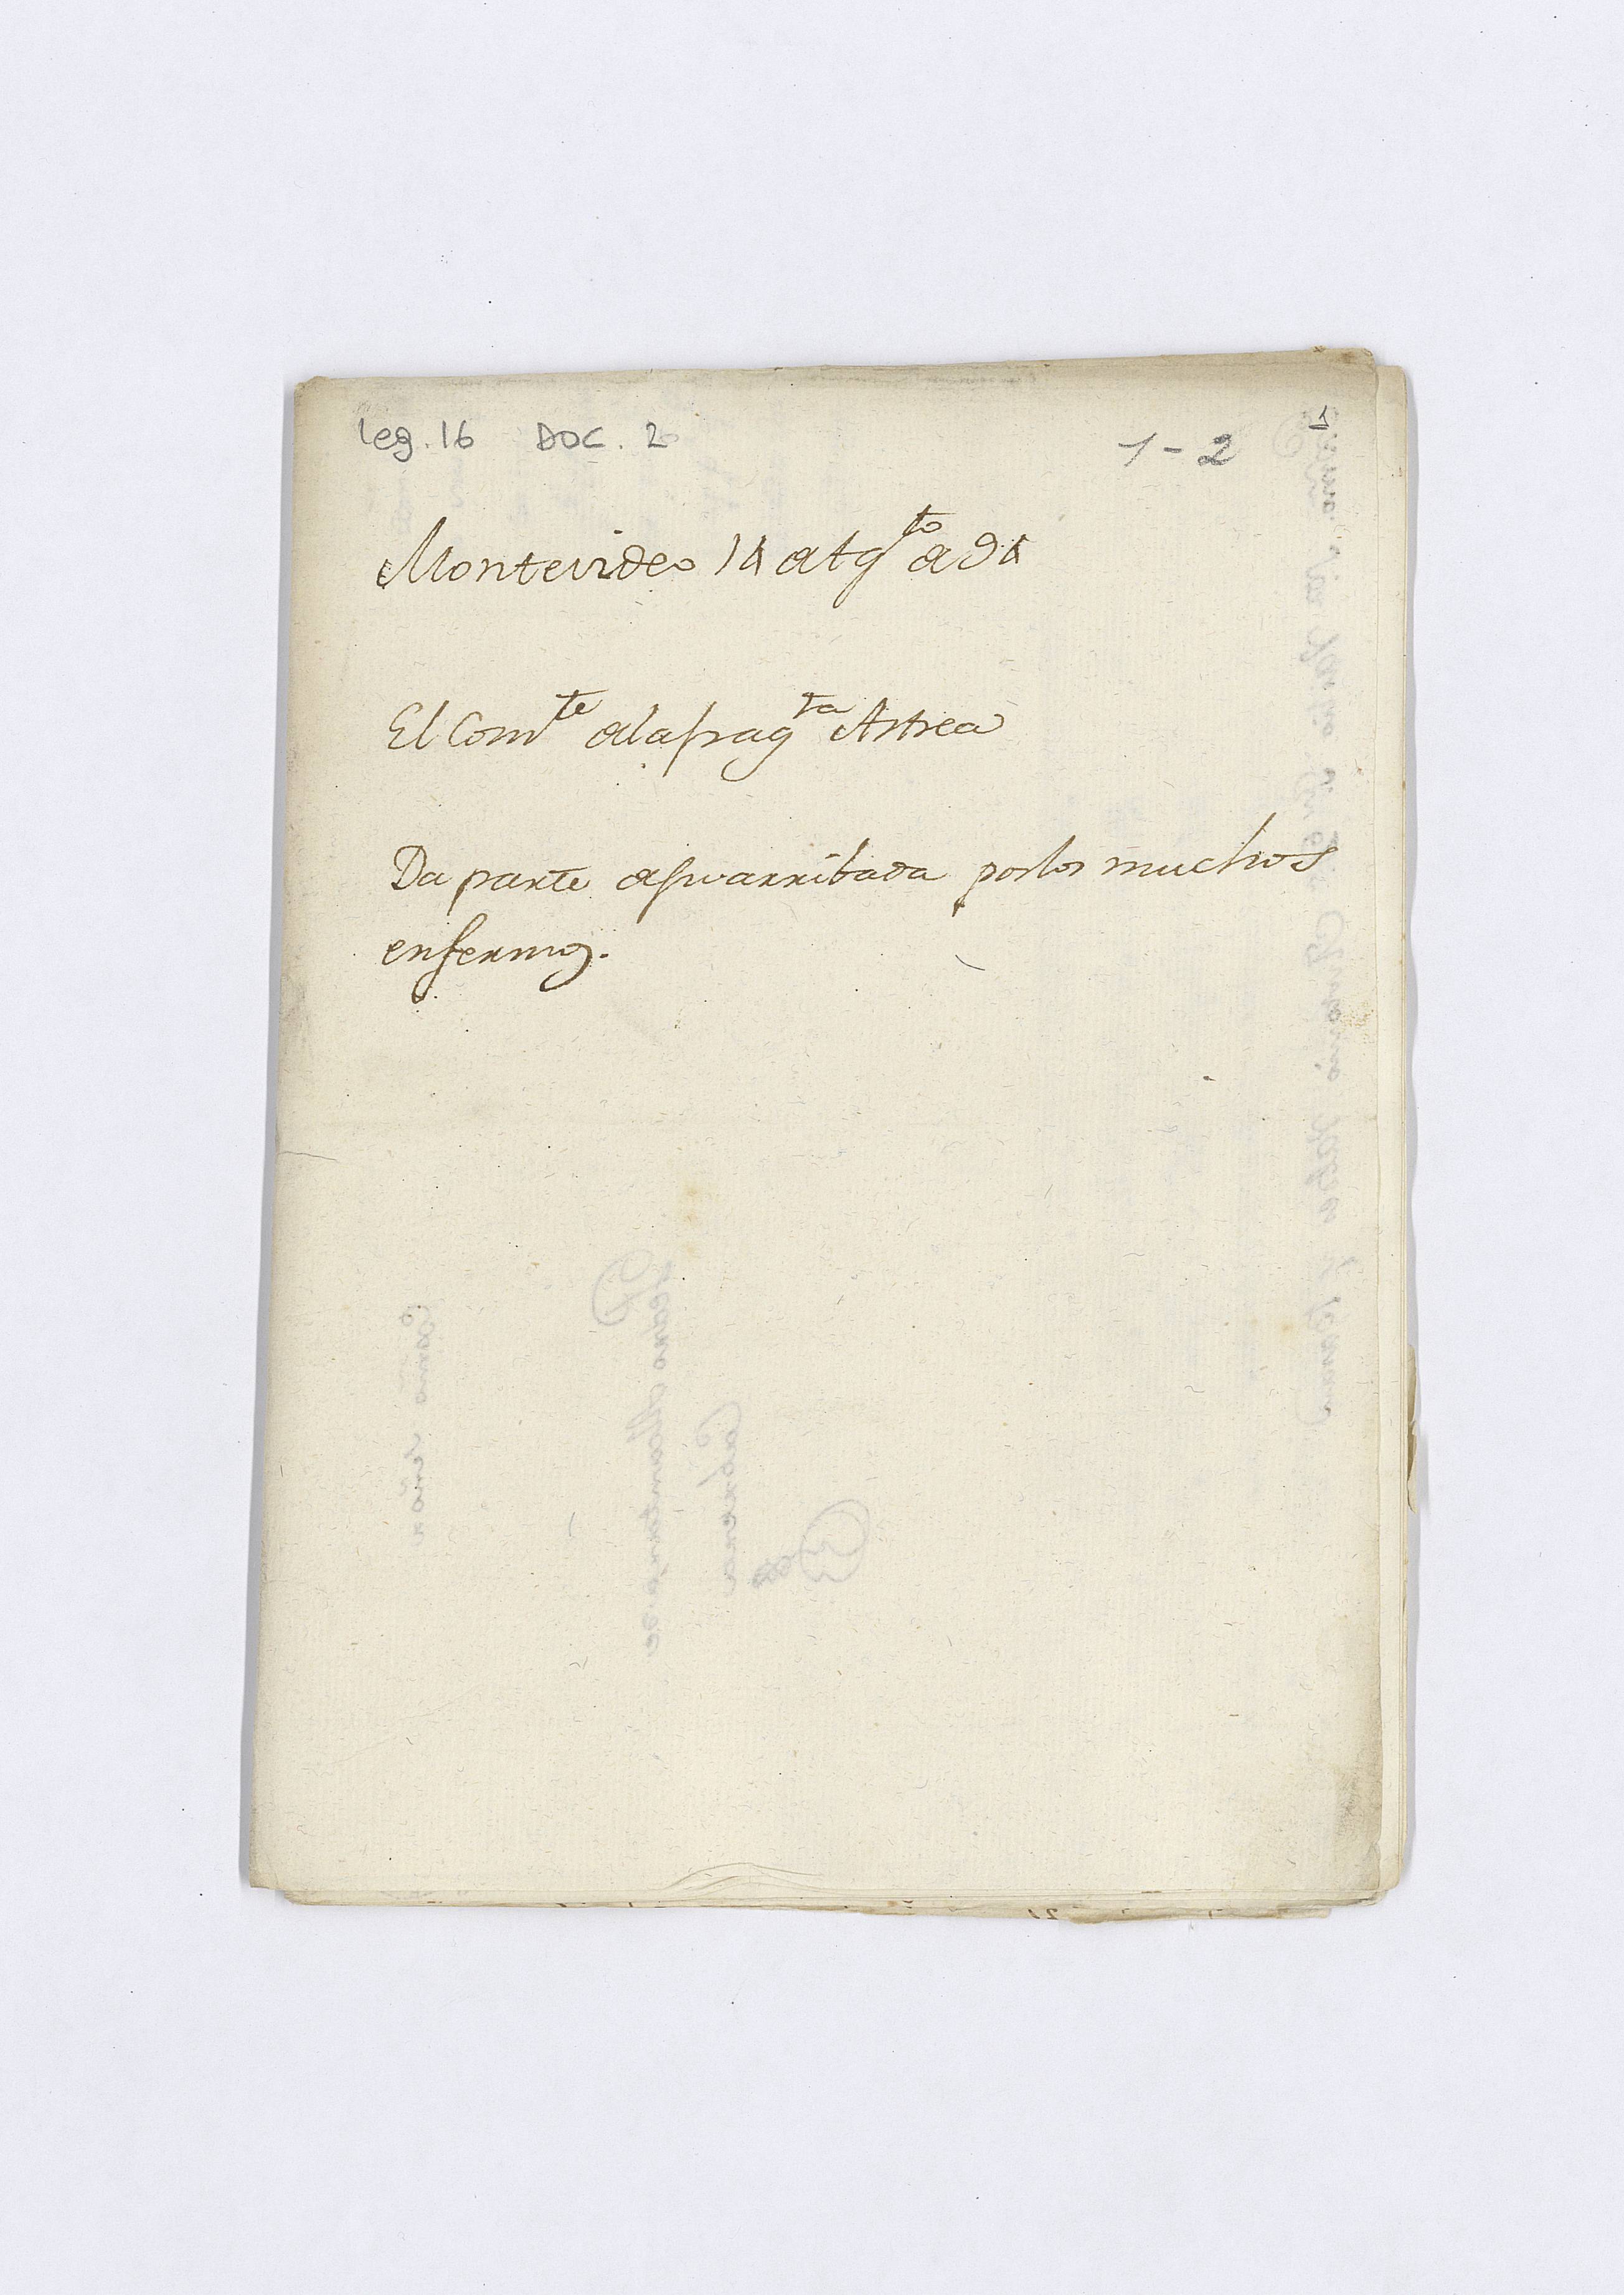 leg. 16 DOC. 2
1 - 2
1
Montevideo 14 de Ag.to de 94
El Com.te de la frag.ta Astrea
Da parte de su arribada por los muchos
enfermos.